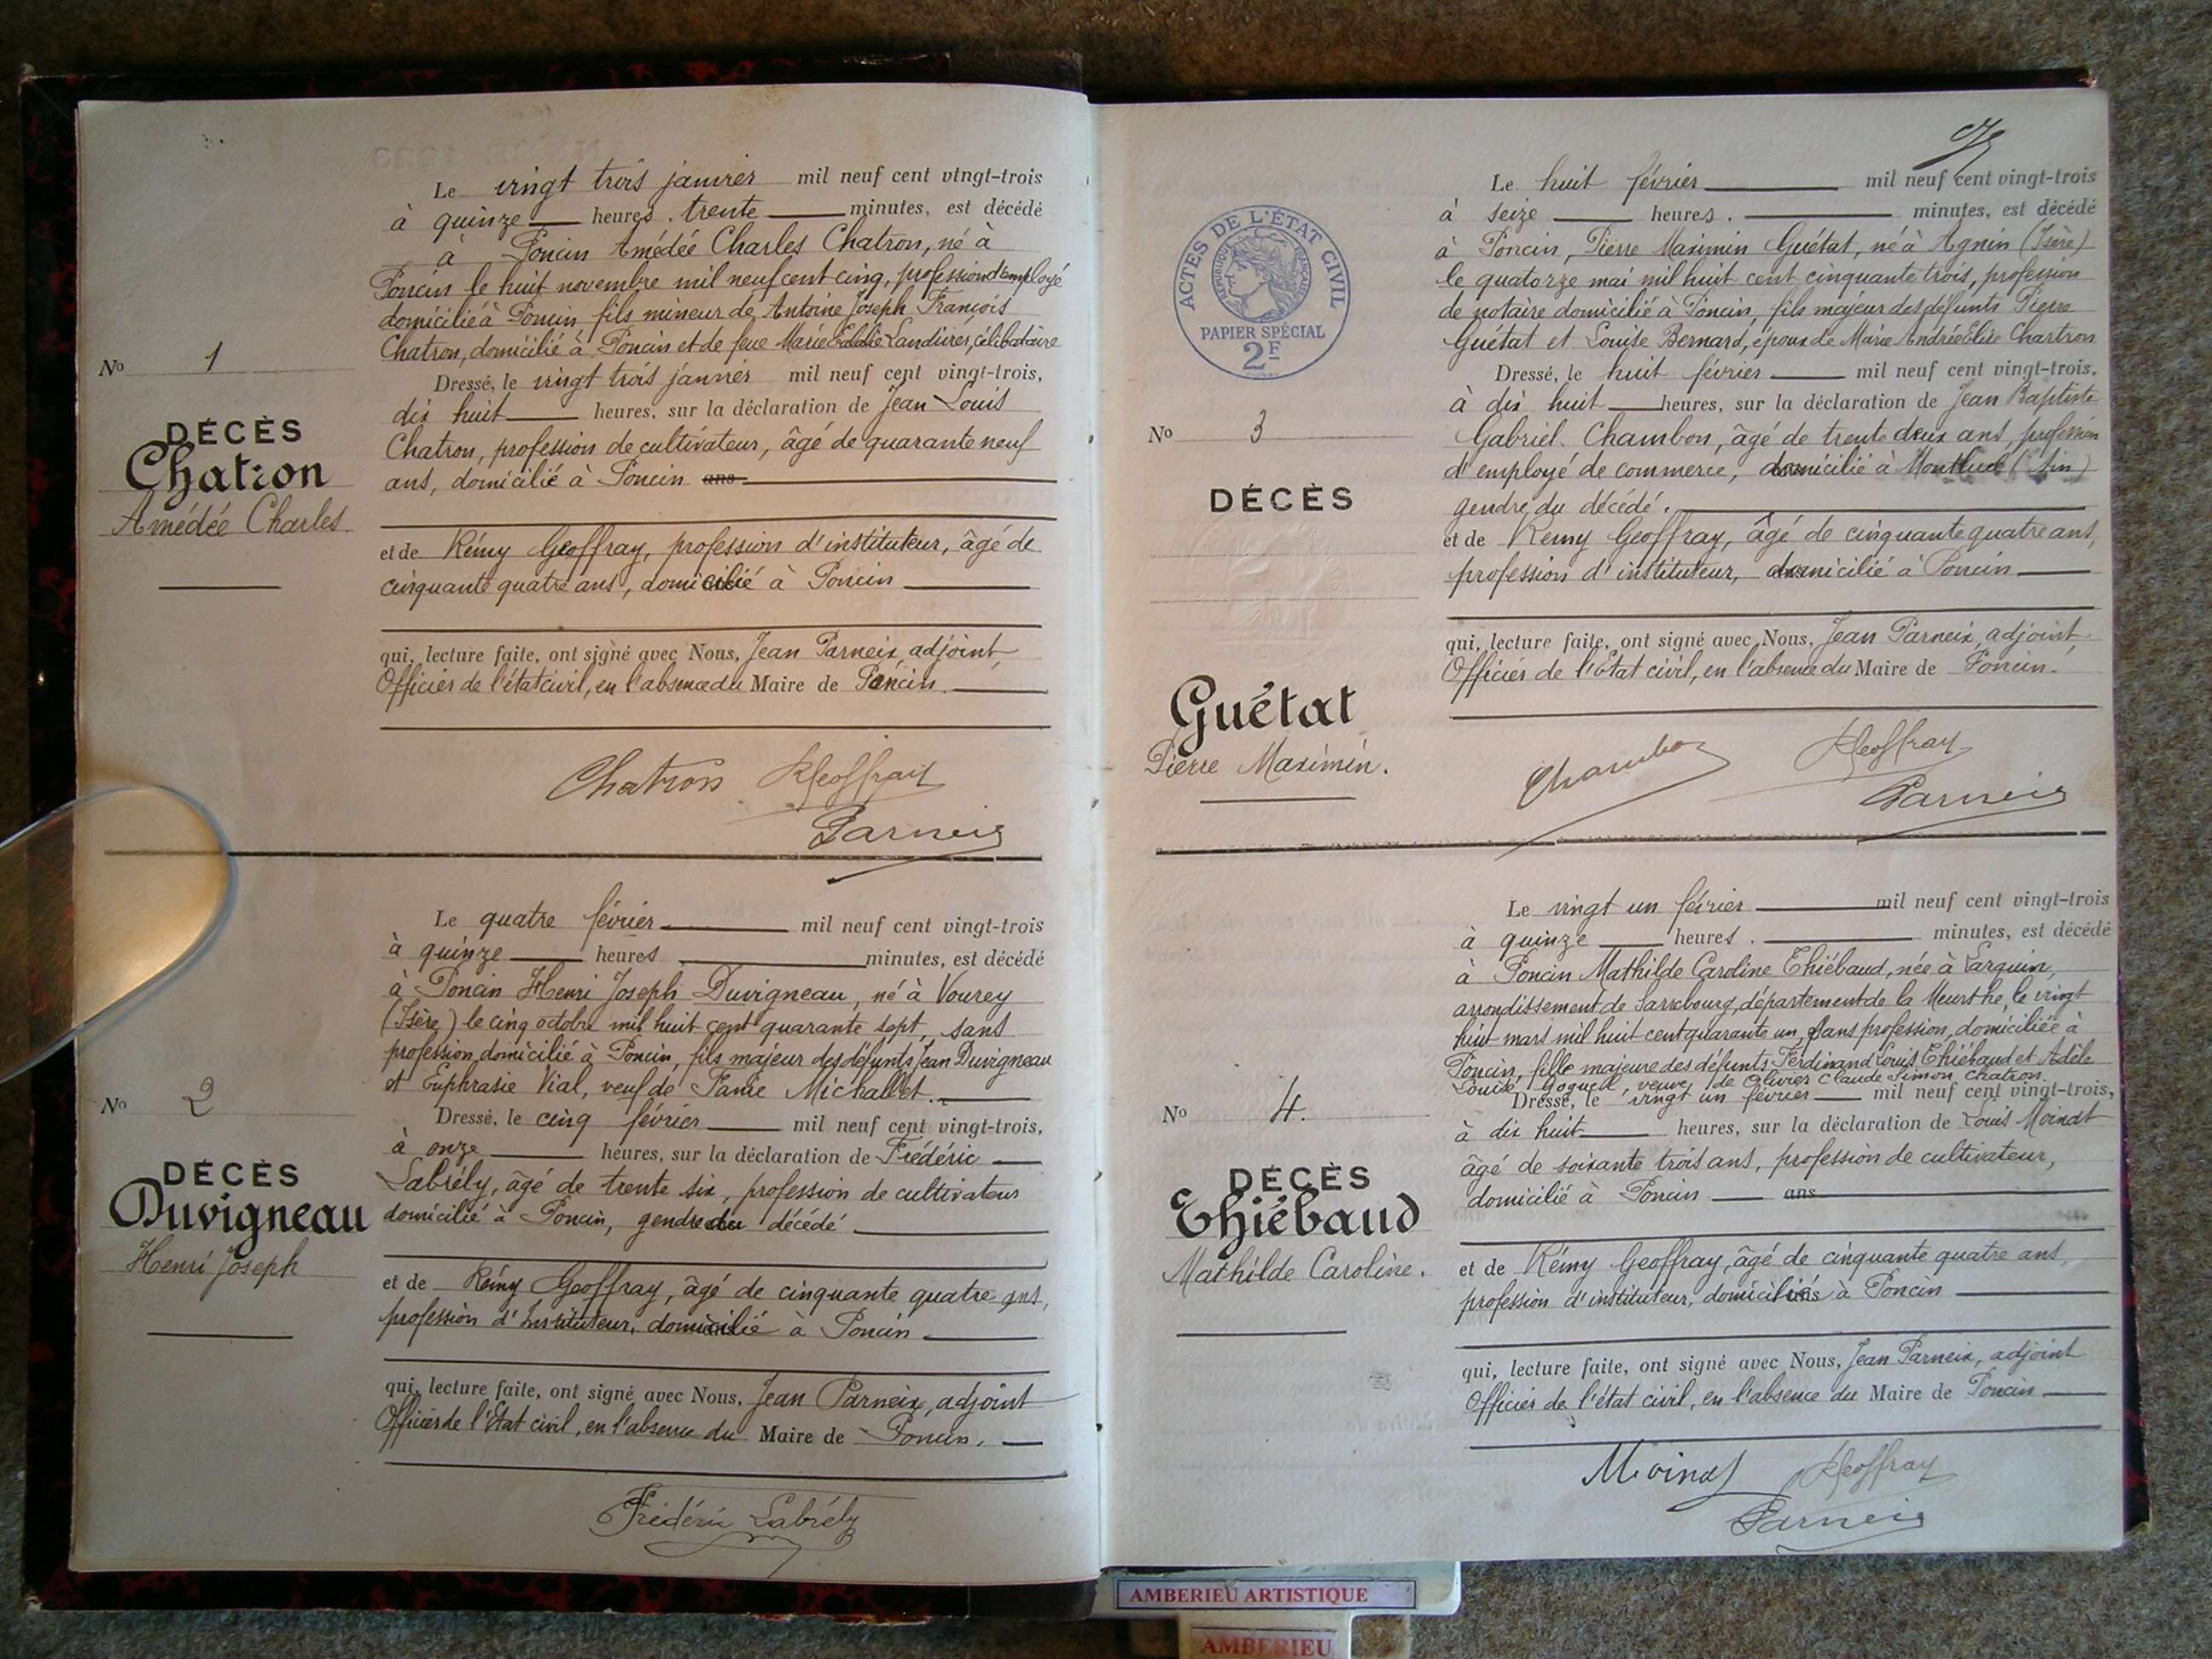 Le vingt trois janvier mil neuf cent vingt-trois
à quinze heures. trente minutes, est décédé
à Poncin Amédée Charles Chatron, né à
Poncin le huit novembre mil neuf cent cinq, profession d'employé
domicilié à Poncin fils mineur de Antoine Joseph François
Chatron, domicilié à Poncin et de feue Marie Eulalie célibataire
No 1
Dressé, le vingt trois janvier mil neuf cent vingt-trois,
dix huit heures, sur la déclaration de Jean Louis
Chatron, profession de cultivateur, âgé de quarante neuf
ans, domicilié à Poncin ans
DÉCÈS
Chatron
Amédée Charles
et de Rémy Geoffray, profession d'instituteur, âgé de
cinquante quatre ans, domicilié à Poncin
qui, lecture faite, ont signé avec Nous, Jean Parneix, adjoint,
Officier de l'état civil, en l'absence du Maire de Poncin.
Chatron RGeoffray
Parneix
Le quatre février mil neuf cent vingt-trois
à quinze heures minutes, est décédé
à Poncin Henri Joseph Duvigneau, né à Vourey
(Isère) le cinq octobre mil huit cent quarante sept, sans
profession, domicilié à Poncin, fils majeur des défunts Jean Duvigneau
et Euphrasie Vial, veuf de Michallet.
No 2
Dressé, le cinq février mil neuf cent vingt-trois,
à onze heures, sur la déclaration de Frédéric
Labrély, âgé de trente six, profession de cultivateur
domicilié à Poncin, gendre du décédé
DÉCÈS
Duvigneau
Henri Joseph
et de Rémy Geoffray, âgé de cinquante quatre ans,
profession d'Instituteur, domicilié à Poncin
qui, lecture faite, ont signé avec Nous, Jean Parneix, adjoint
Officier de l'État civil, en l'absence du Maire de Poncin.
Frédéric Labrély
Le huit février mil neuf cent vingt-trois
à seize heures. minutes, est décédé
à Poncin, Pierre Maximin Guétat, né à Agnin (Isère)
le quatorze mai mil huit cent cinquante trois, profession
de notaire domicilié à Poncin, fils majeur des défunts Pierre
Guétat et Louise Bernard, époux de Marie Andrée Elise Chartron
ACTES DE L'ÉTAT CIVIL
RÉPUBLIQUE FRANÇAISE
PAPIER SPÉCIAL
2F
No 3
Dressé, le huit février mil neuf cent vingt-trois,
à dix huit heures, sur la déclaration de Jean Baptiste
Gabriel Chambon, âgé de trente deux ans, profession
d'employé de commerce, domicilié à Montluel (Ain)
gendre du décédé.
DÉCÈS
Guétat
Pierre Maximin.
et de Remy Geoffray, âgé de cinquante quatre ans,
profession d'instituteur, domicilié à Poncin
qui, lecture faite, ont signé avec Nous, Jean Parneix adjoint,
Officier de l'État civil, en l'absence du Maire de Poncin.
Chambon RGeoffray
Parneix
Le vingt un février mil neuf cent vingt-trois
à quinze heures. minutes, est décédé
à Poncin Mathilde Caroline Thiébaud, née à Lorquin,
arrondissement de Sarrebourg, département de la Meurthe, le vingt
huit mars mil huit cent quarante un, sans profession, domiciliée à
Poncin, fille majeure des défunts Ferdinand Louis Thiébaud et Adèle
Louise veuve de Olivier Claude Simon Chatron
No 4.
Dressé, le vingt un février mil neuf cent vingt-trois,
à dix huit heures, sur la déclaration de Louis Moindt
âgé de soixante trois ans, profession de cultivateur,
domicilié à Poncin ans
DÉCÈS
Thiébaud
Mathilde Caroline.
et de Rémy Geoffray, âgé de cinquante quatre ans,
profession d'instituteur, domiciliés à Poncin
qui, lecture faite, ont signé avec Nous, Jean Parneix, adjoint
Officier de l'état civil, en l'absence du Maire de Poncin
RGeoffray
Parneix
AMBERIEU ARTISTIQUE
AMBERIEU